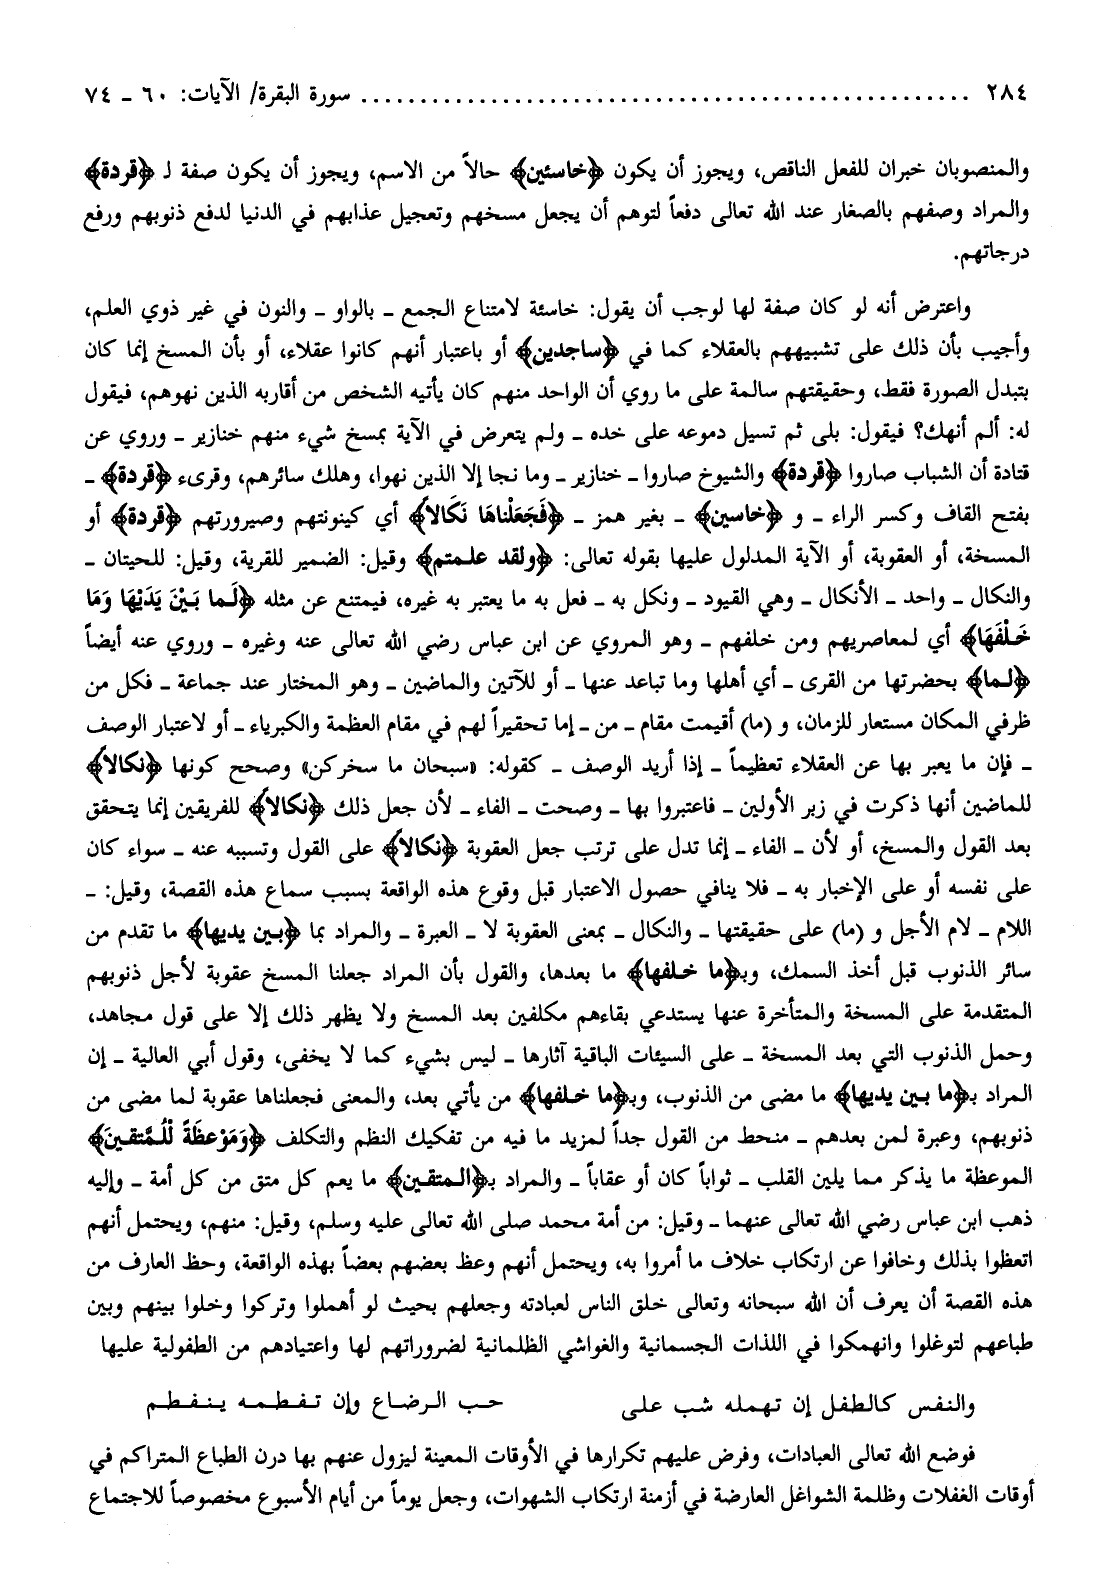 ٢٨٤ .................................................... سورة البقرة/ الآيات: ٦٠ ـ ٧٤
والمنصوبان خبران للفعل الناقص، ويجوز أن يكون ﴿خاسئين﴾ حالاً من الاسم، ويجوز أن يكون صفة لـ ﴿قردة﴾
والمراد وصفهم بالصغار عند الله تعالى دفعاً لتوهم أن يجعل مسخهم وتعجيل عذابهم في الدنيا لدفع ذنوبهم ورفع
درجاتهم.
واعترض أنه لو كان صفة لها لوجب أن يقول: خاسئة لامتناع الجمع ـ بالواو ـ والنون في غير ذوي العلم،
وأجيب بأن ذلك على تشبيههم بالعقلاء كما في ﴿ساجدين﴾ أو باعتبار أنهم كانوا عقلاء، أو بأن المسخ إنما كان
بتبدل الصورة فقط، وحقيقتهم سالمة على ما روي أن الواحد منهم كان يأتيه الشخص من أقاربه الذين نهوهم، فيقول
له: ألم أنهك؟ فيقول: بلى ثم تسيل دموعه على خده ـ ولم يتعرض في الآية بمسخ شيء منهم خنازير ـ وروي عن
قتادة أن الشباب صاروا ﴿قردة﴾ والشيوخ صاروا ـ خنازير ـ وما نجا إلا الذين نهوا، وهلك سائرهم، وقرىء ﴿قردة﴾ ـ
بفتح القاف وكسر الراء ـ و ﴿خاسين﴾ ـ بغير همز ـ ﴿فَجَعَلْناهَا نَكَالاً﴾ أي كينونتهم وصيرورتهم ﴿قردة﴾ أو
المسخة، أو العقوبة، أو الآية المدلول عليها بقوله تعالى: ﴿ولقد علمتم﴾ وقيل: الضمير للقرية، وقيل: للحيتان ـ
والنكال ـ واحد ـ الأنكال ـ وهي القيود ـ ونكل به ـ فعل به ما يعتبر به غيره، فيمتنع عن مثله ﴿لَما بَيْنَ يَدَيْهَا وَمَا
خَلْفَهَا﴾ أي لمعاصريهم ومن خلفهم ـ وهو المروي عن ابن عباس رضي الله تعالى عنه وغيره ـ وروي عنه أيضاً
﴿لما﴾ بحضرتها من القرى ـ أي أهلها وما تباعد عنها ـ أو للآتين والماضين ـ وهو المختار عند جماعة ـ فكل من
ظرفي المكان مستعار للزمان، و (ما) أقيمت مقام ـ من ـ إما تحقيراً لهم في مقام العظمة والكبرياء ـ أو لاعتبار الوصف
ـ فإن ما يعبر بها عن العقلاء تعظيماً ـ إذا أريد الوصف ـ كقوله: «سبحان ما سخركن» وصحح كونها ﴿نكالاً﴾
للماضين أنها ذكرت في زبر الأولين ـ فاعتبروا بها ـ وصحت ـ الفاء ـ لأن جعل ذلك ﴿نكالاً﴾ للفريقين إنما يتحقق
بعد القول والمسخ، أو لأن ـ الفاء ـ إنما تدل على ترتب جعل العقوبة ﴿نكالاً﴾ على القول وتسببه عنه ـ سواء كان
على نفسه أو على الإخبار به ـ فلا ينافي حصول الاعتبار قبل وقوع هذه الواقعة بسبب سماع هذه القصة، وقيل: ـ
اللام ـ لام الأجل و (ما) على حقيقتها ـ والنكال ـ بمعنى العقوبة لا ـ العبرة ـ والمراد بما ﴿بين يديها﴾ ما تقدم من
سائر الذنوب قبل أخذ السمك، وبـ﴿ما خلفها﴾ ما بعدها، والقول بأن المراد جعلنا المسخ عقوبة لأجل ذنوبهم
المتقدمة على المسخة والمتأخرة عنها يستدعي بقاءهم مكلفين بعد المسخ ولا يظهر ذلك إلا على قول مجاهد،
وحمل الذنوب التي بعد المسخة ـ على السيئات الباقية آثارها ـ ليس بشيء كما لا يخفى، وقول أبي العالية ـ إن
المراد بـ﴿ما بين يديها﴾ ما مضى من الذنوب، وبـ﴿ما خلفها﴾ من يأتي بعد، والمعنى فجعلناها عقوبة لما مضى من
ذنوبهم، وعبرة لمن بعدهم ـ منحط من القول جداً لمزيد ما فيه من تفكيك النظم والتكلف ﴿وَمَوْعظَةً لْلْمُتَّقينَ﴾
الموعظة ما يذكر مما يلين القلب ـ ثواباً كان أو عقاباً ـ والمراد بـ﴿المتقين﴾ ما يعم كل متق من كل أمة ـ وإليه
ذهب ابن عباس رضي الله تعالى عنهما ـ وقيل: من أمة محمد صلى الله تعالى عليه وسلم، وقيل: منهم، ويحتمل أنهم
اتعظوا بذلك وخافوا عن ارتكاب خلاف ما أمروا به، ويحتمل أنهم وعظ بعضهم بعضاً بهذه الواقعة، وحظ العارف من
هذه القصة أن يعرف أن الله سبحانه وتعالى خلق الناس لعبادته وجعلهم بحيث لو أهملوا وتركوا وخلوا بينهم وبين
طباعهم لتوغلوا وانهمكوا في اللذات الجسمانية والغواشي الظلمانية لضروراتهم لها واعتيادهم من الطفولية عليها
والنفس كالطفل إن تهمله شب على حب الرضاع وإن تفطمه ينفطم
فوضع الله تعالى العبادات، وفرض عليهم تكرارها في الأوقات المعينة ليزول عنهم بها درن الطباع المتراكم في
أوقات الغفلات وظلمة الشواغل العارضة في أزمنة ارتكاب الشهوات، وجعل يوماً من أيام الأسبوع مخصوصاً للاجتماع